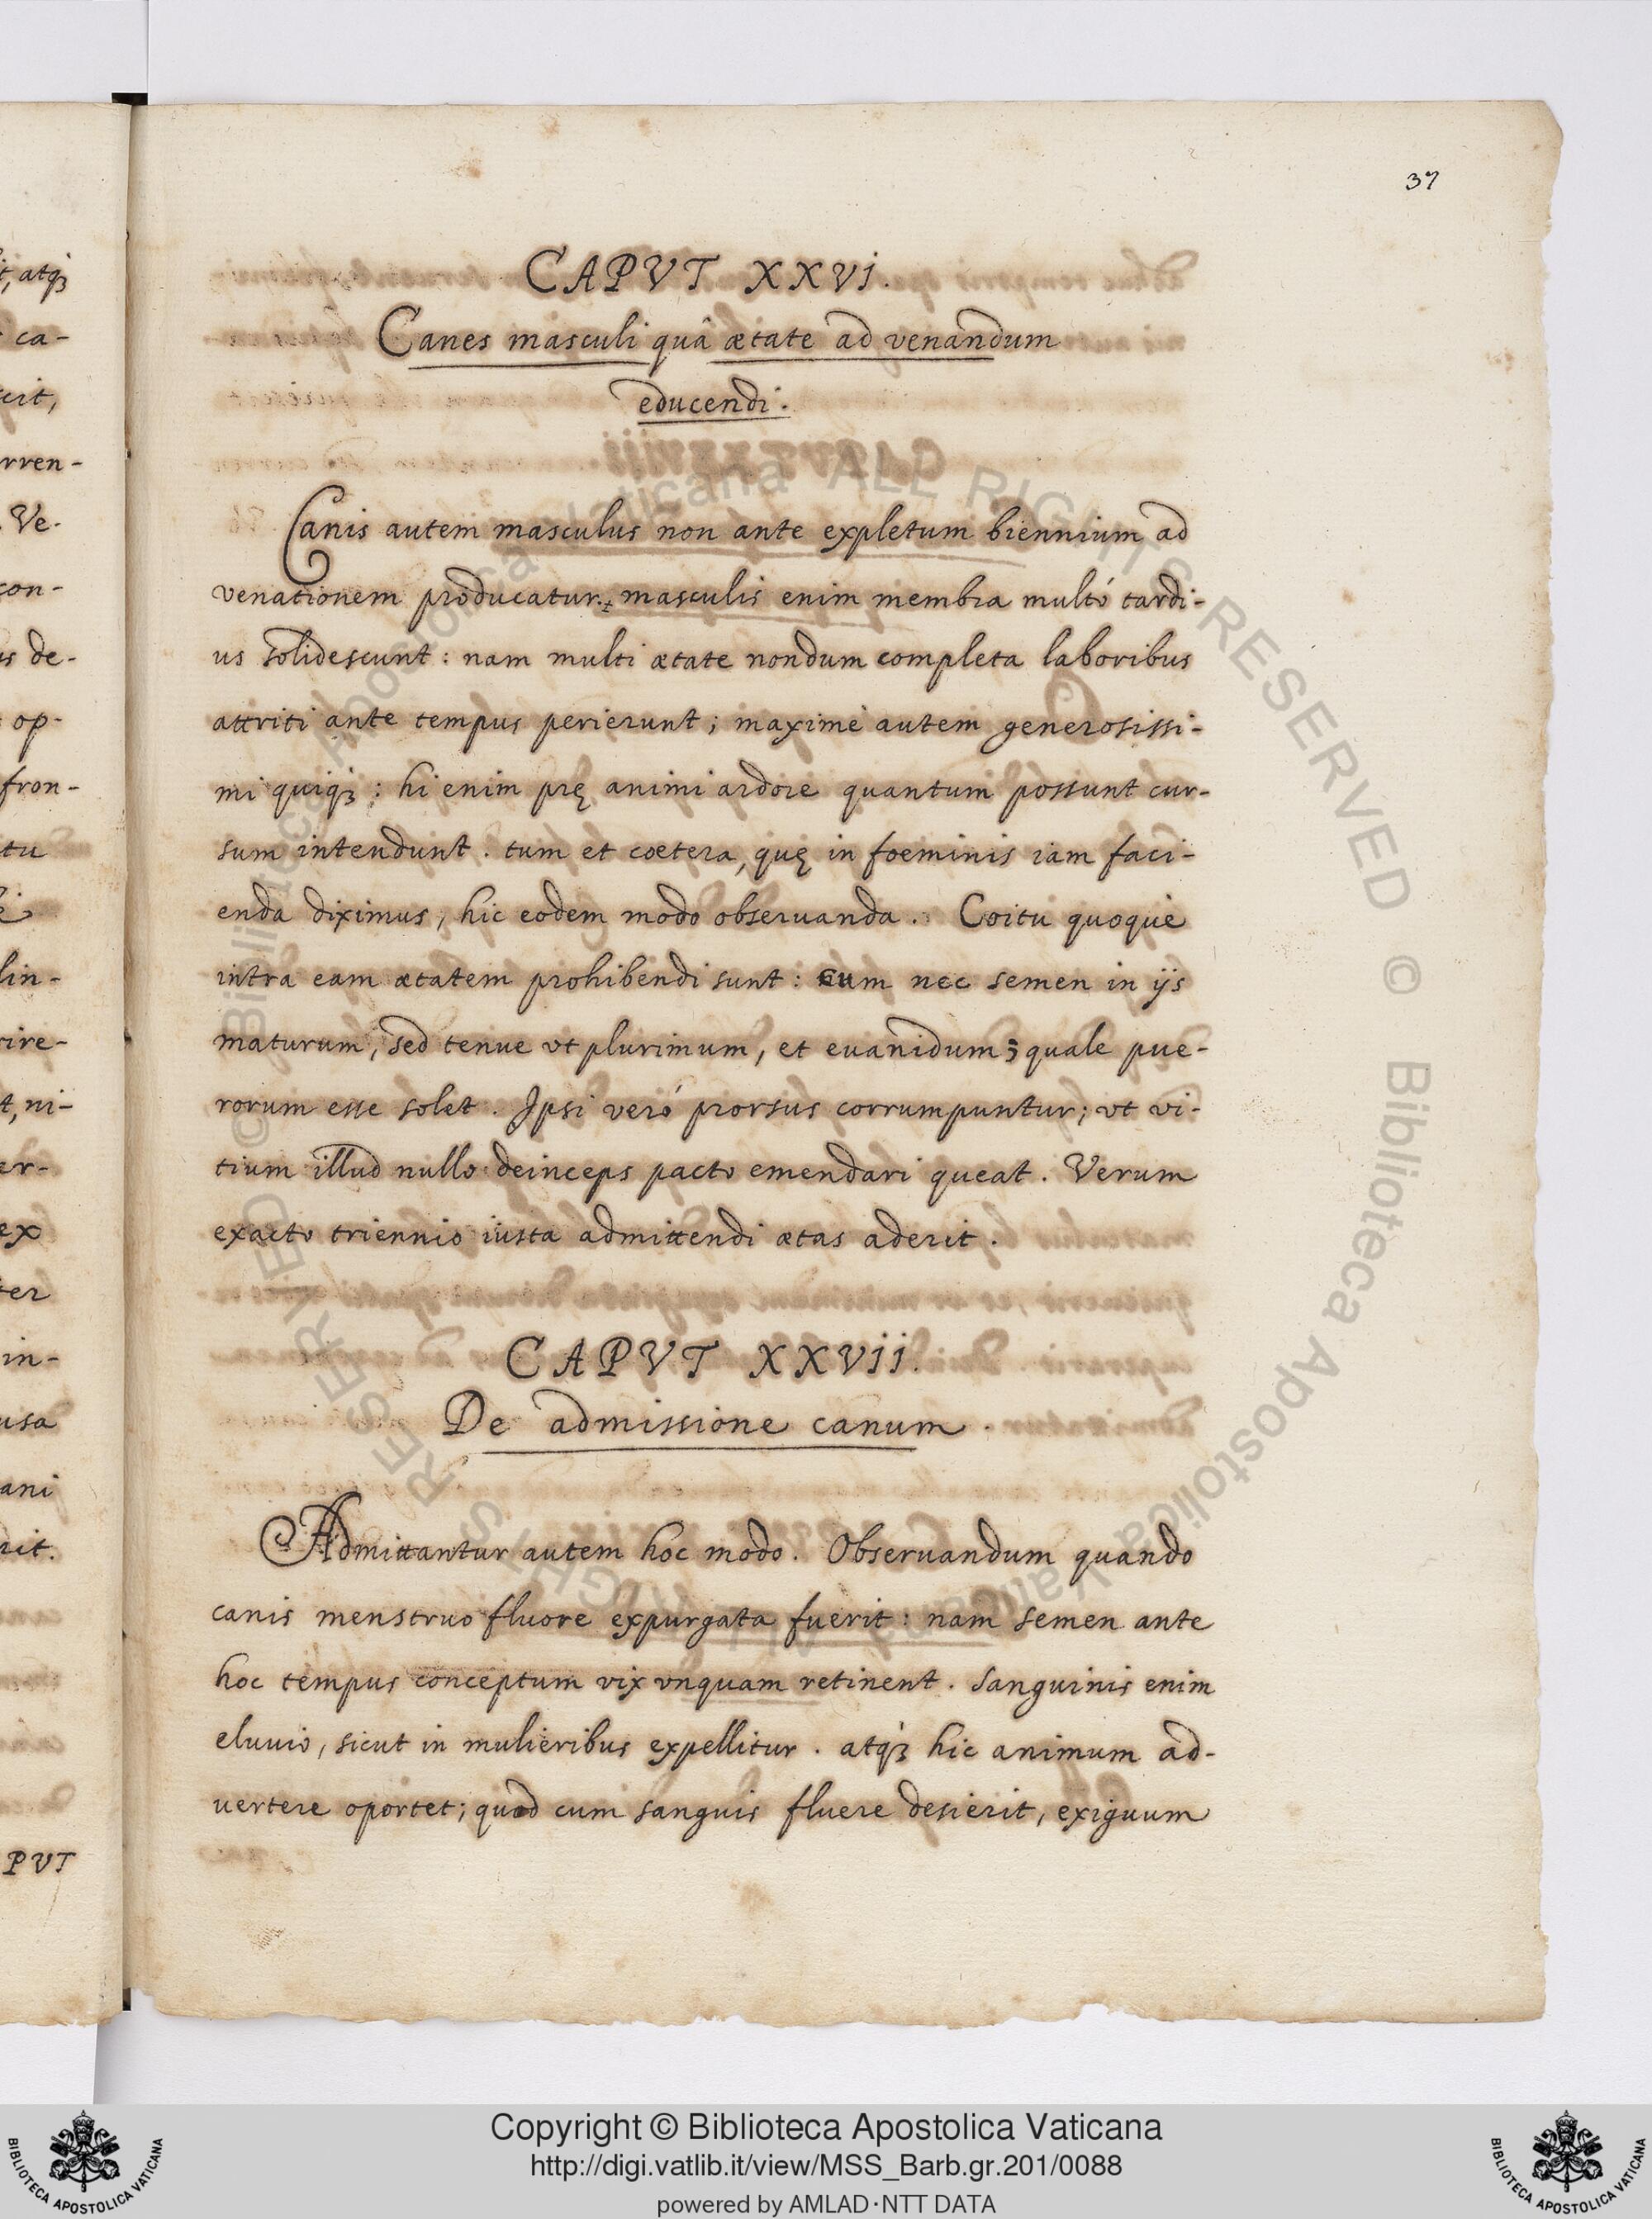 37
CAPVT XXVI.
Canes masculi quâ ætate ad venandum
educendi.
Canis autem masculus non ante expletum biennium ad
venationem producatur. masculis enim membra multó tardi-
us solidescunt: nam multi ætate nondum completa laboribus
attriti ante tempus perierunt; maximè autem generosissi-
mi quiqꝫ: hi enim prę animi ardore quantum possunt cur-
sum intendunt. tum et cœtera, quę in foeminis iam faci-
enda diximus, hic eodem modo obseruanda. Coitu quoquè
intra eam ætatem prohibendi sunt: cum nec semen in ijs
maturum, sed tenue vt plurimum, et euanidum; quale pue-
rorum esse solet. Ipsi veró prorsus corrumpuntur; vt vi-
tium illud nullo deinceps pacto emendari queat. Verum
exacto triennio iusta admittendi ætas aderit.
CAPVT XXVII.
De admissione canum.
Admittantur autem hoc modo. Obseruandum quando
canis menstruo fluore expurgata fuerit: nam semen ante
hoc tempus conceptum vix vnquam retinent. Sanguinis enim
eluuio, sicut in mulieribus expellitur. atqꝫ hic animum ad-
uertere oportet; quod cum sanguis fluere desierit, exiguum
t, atqꝫ
ca-
cit,
rren-
Ve-
con-
us de-
op-
fron-
tu
lin-
rire-
t, ni-
er-
ex
ter
in-
usa
ani
rit.
PVT
© Biblioteca Apostolica Vaticana ALL RIGHTS RESERVED © Biblioteca Apostolica Vaticana ALL RIGHTS RESERVED
BIBLIOTECA APOSTOLICA VATICANA
Copyright © Biblioteca Apostolica Vaticana
http://digi.vatlib.it/view/MSS_Barb.gr.201/0088
powered by AMLAD·NTT DATA
BIBLIOTECA APOSTOLICA VATICANA